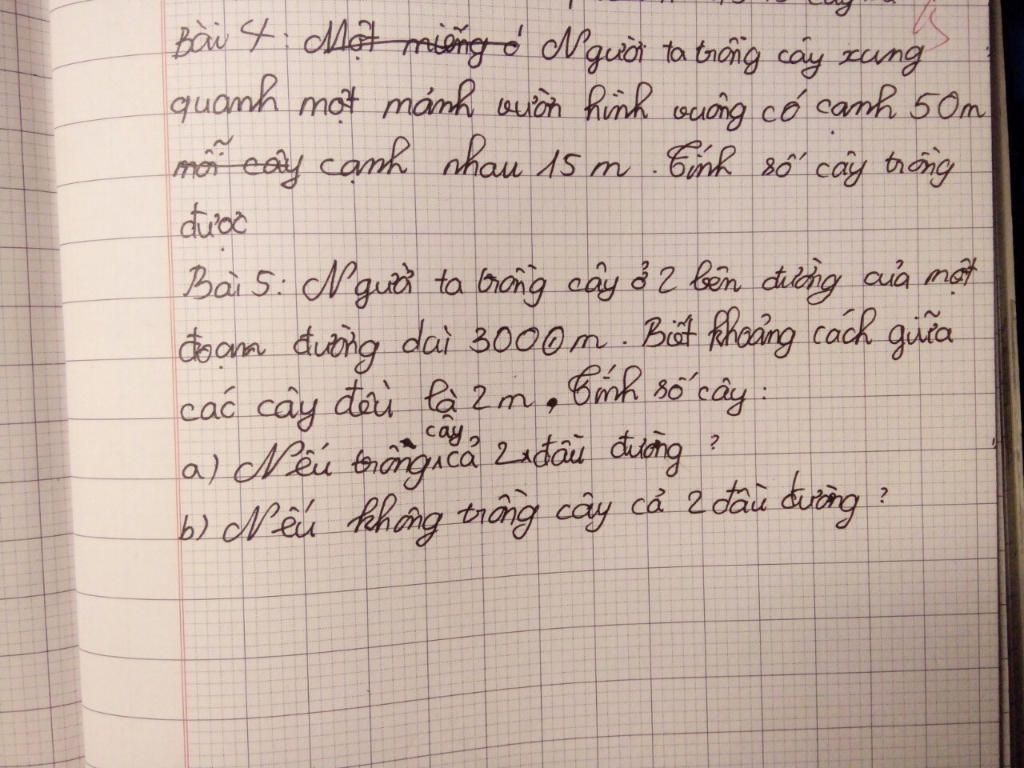 Bài 4: Một miếng ở Người ta trồng cây xung
quanh một mảnh vườn hình vuông có cạnh 50m
mỗi cây cạnh nhau 15 m. Tính số cây trồng
được
Bài 5: Người ta trồng cây ở 2 bên đường của một
đoạn đường dài 3000m. Biết khoảng cách giữa
các cây đều là 2m, Tính số cây:
cây
a) Nếu trồng cả 2 đầu đường?
b) Nếu không trồng cây cả 2 đầu đường?